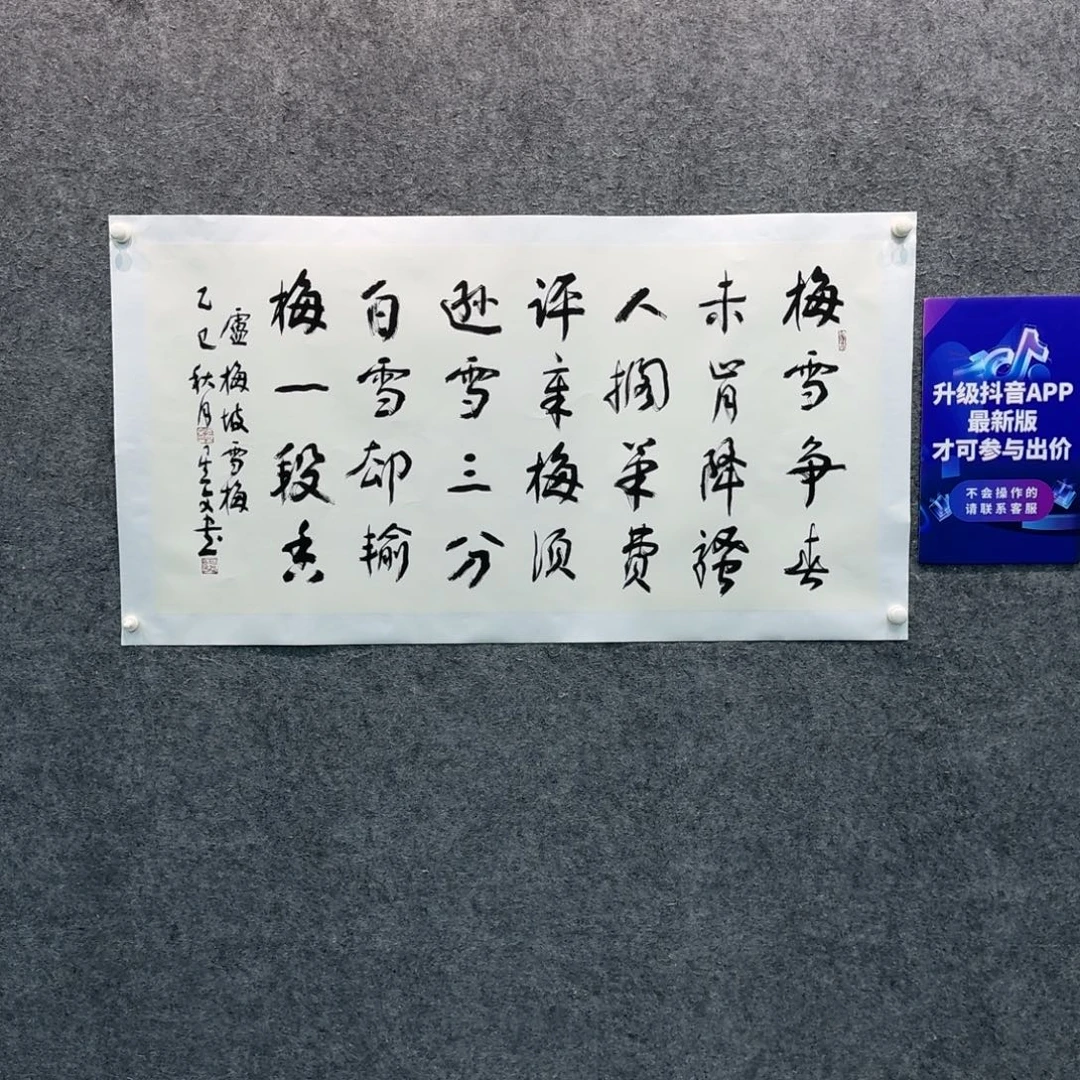 梅雪争春
未肯降骚
人搁笔費
评章梅须
逊雪三分
白雪却输
梅一段香
盧梅坡雪梅
乙巳秋月
升级抖音APP
最新版
才可参与出价
不会操作的
请联系客服